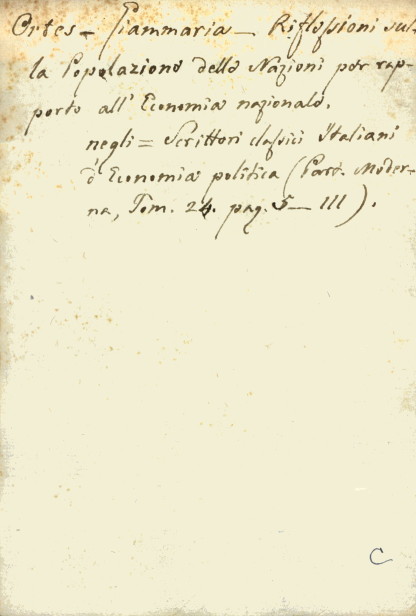 Ortes - Giammaria - Riflessioni sul-
la Popolazione delle Nazioni per rap-
porto all' Economia nazionale.
negli = Scrittori classici Italiani
d' Economia politica (Part. Moder-
na, Tom. 24. pag. 5 - 111).
C